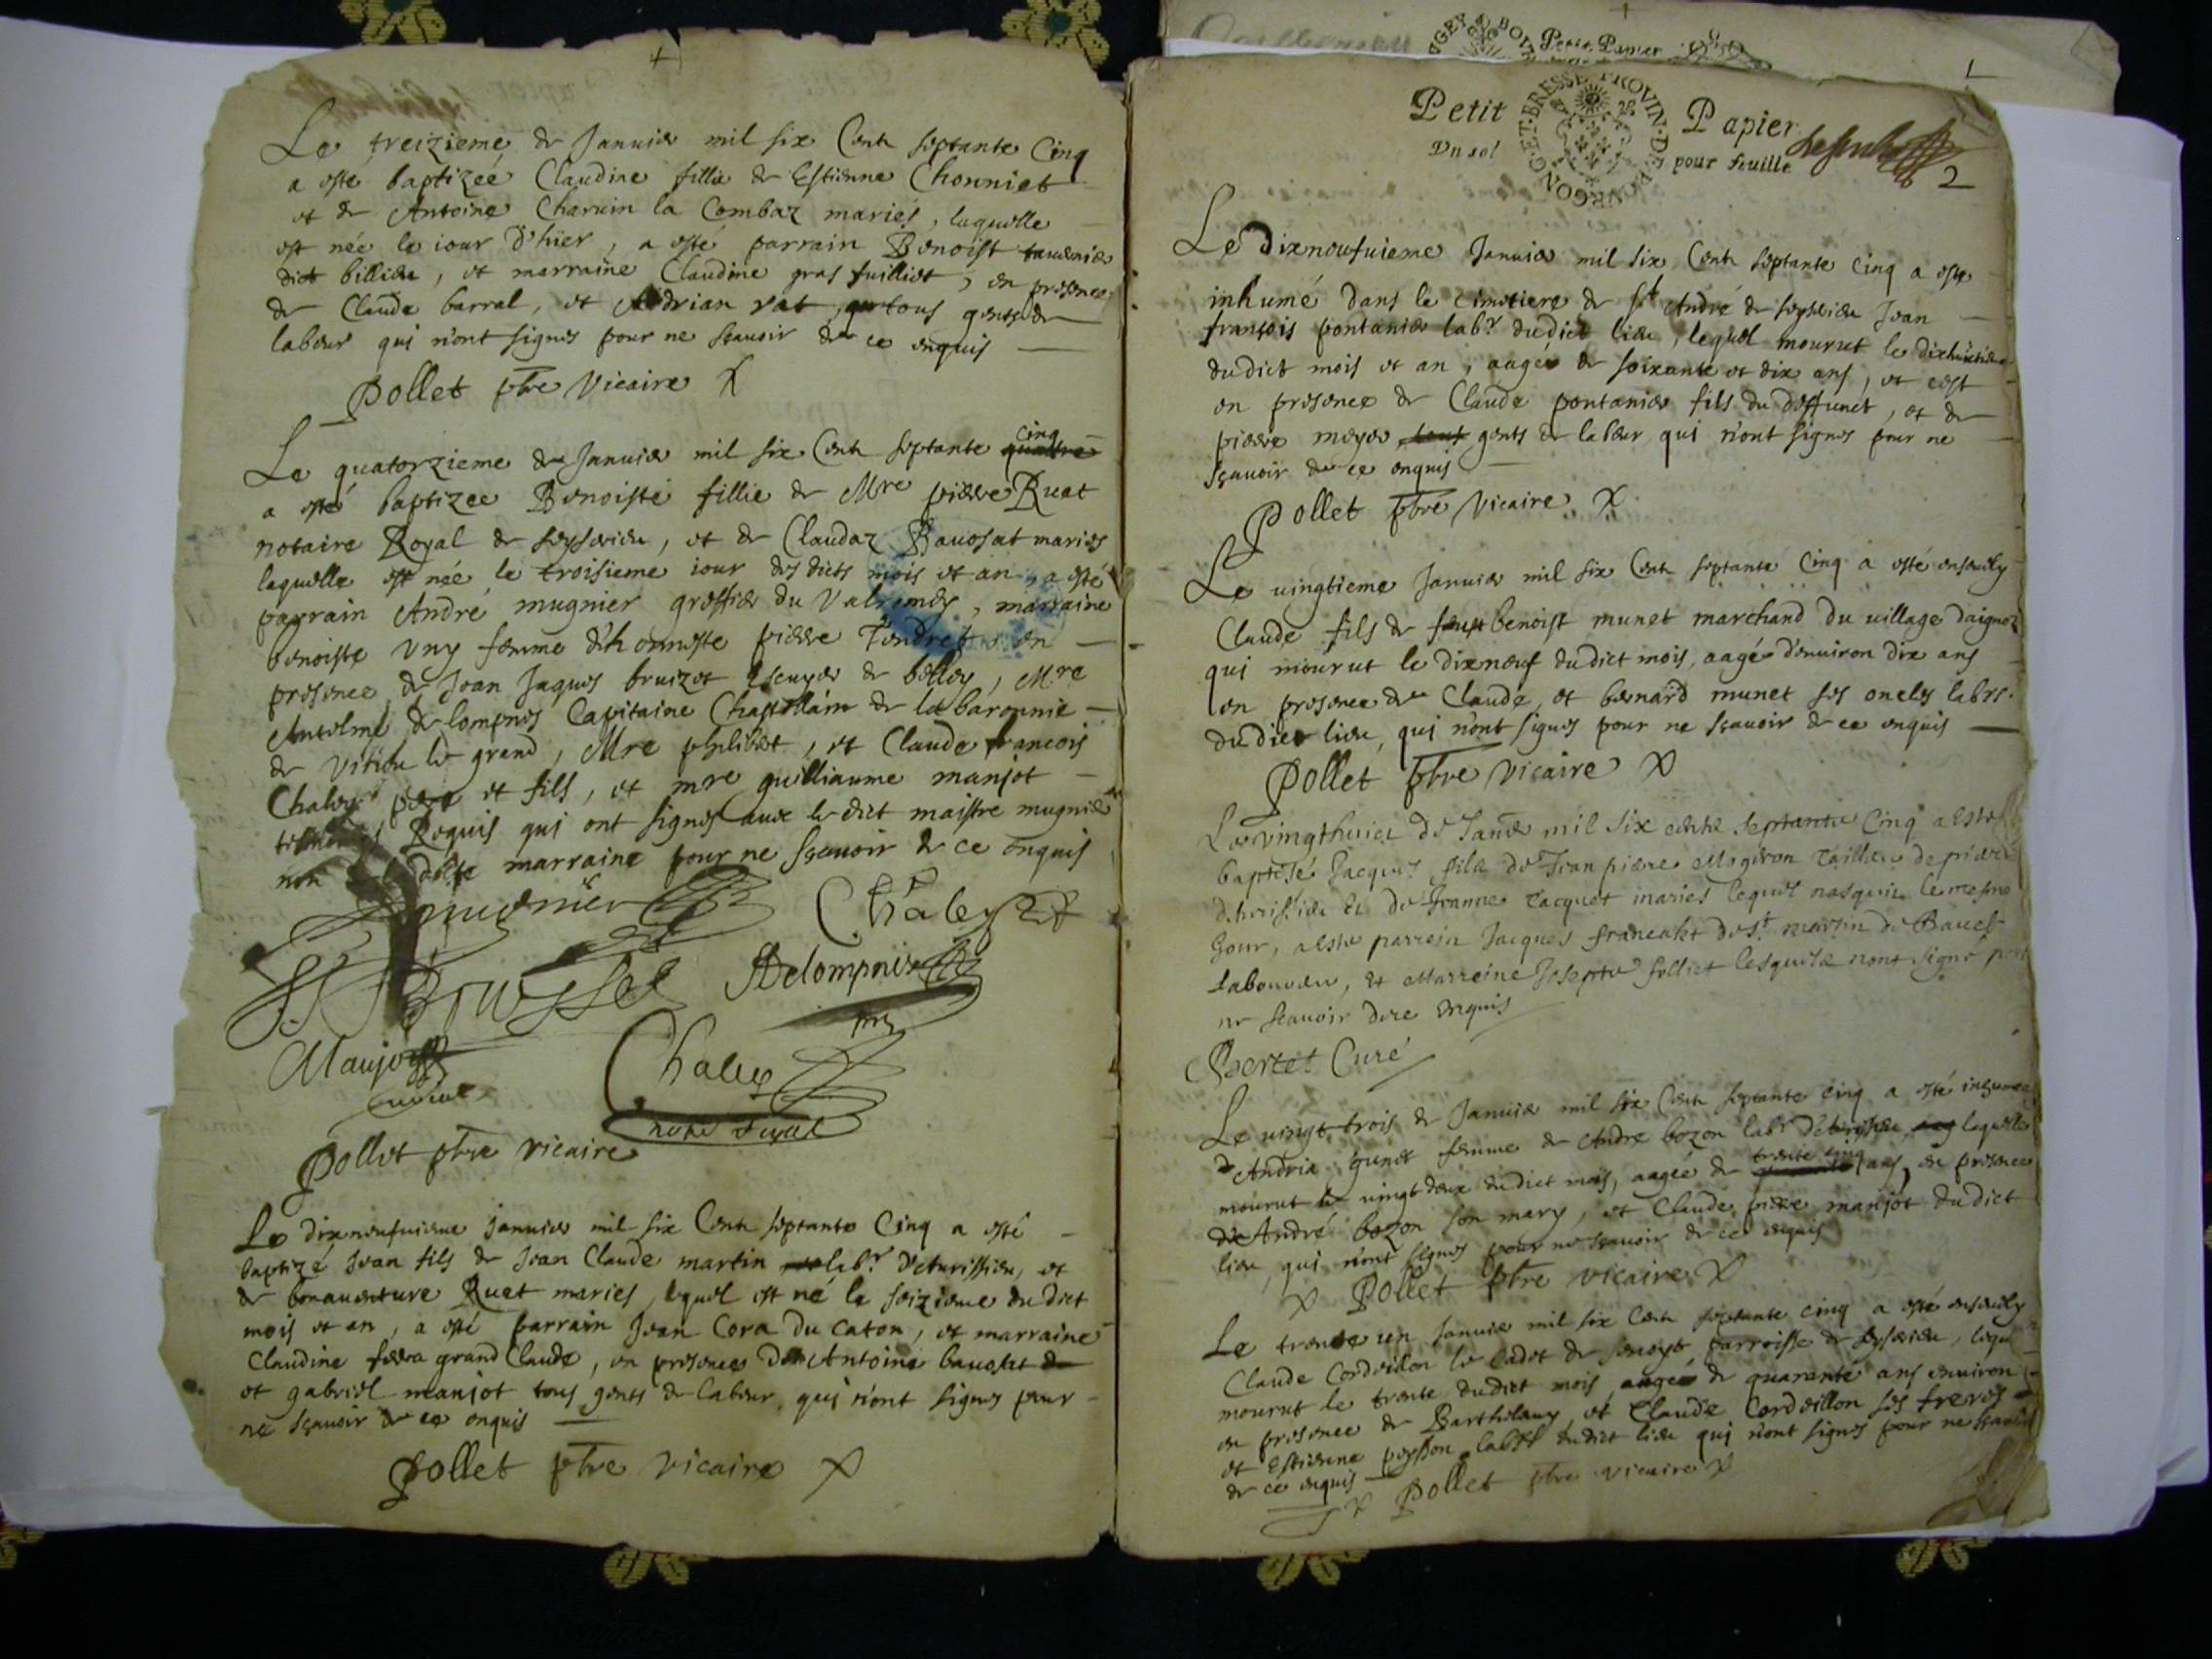 Le treizieme de Januier mil six Cent septante Cinq
a esté baptizée Claudine fillie de Estienne Chonniet
et de Antoine Charuin la Combaz mariés, laquelle
est née le iour d'hier, a esté parrain Benoist
dict billieu, et marraine Claudine gras fuilliet, en presence
de Claude barral, et Andrian rat, tous gents de
labeur qui n'ont signes pour ne scauoir de ce enquis
Pollet pbre Vicaire
Le quatorzieme de Januier mil six Cent septante cinq
a esté baptizee Benoiste fillie de Mre pierre Ruet
notaire Royal de seyserieu, et de Claudaz Bauosat maries
laquelle est née le troisieme iour des dicts mois et an, a esté
parrain André mugnier greffier du Valromey, marraine
benoiste Vny femme d'honneste pierre Tendret en
presence de Jean Jaques bruizet Escuyer de belley, Mre
Antelme de lompnes Capitaine Chastellain de la baronnie
de Virieu le grand, Mre philibert, et Claude francois
Chaley pere et fils, et mre guilliaume manjot
Requis qui ont signes auec le dict maistre mugnier
non marraine pour ne scauoir de ce enquis
mugnier Chaley
Delompnes
Manjot
Chaley
Pollet pbre vicaire
Le dixneufuieme Januier mil six Cent septante Cinq a esté
baptizé Jean fils de Jean Claude martin labr d'eturissieu, et
de bonauenture Ruet maries, lequel est né le seizieme du dict
mois et an, a esté parrain Jean Cora du Caton, et marraine
Claudine ferra grand Claude, en presences de Antoine bauosat
et gabriel manjot tous gents de labeur, qui n'ont signes pour
ne scauoir de ce enquis
Pollet pbre vicaire
Petit Papier
BVGEY·ET·BRESSE PROVIN·DE·BOVRGON
Vn sol pour feuille
2
Le dixneufuieme Januier mil six Cent septante cinq a esté
inhumé dans le cimetiere de st André de seyserieu Jean
françois pontanier labr du dict lieu, lequel mourut le dixhuitieme
du dict mois et an, aagé de soixante et dix ans, et cest
en presence de Claude pontanier fils du deffunct, et de
pierre meyer gents de labeur qui n'ont signes pour ne
scauoir de ce enquis
Pollet pbre Vicaire
Le uingtieme Januier mil six Cent septante Cinq a esté enseuely
Claude fils de feu benoist munet marchand du uillage
qui mourut le dixneuf du dict mois, aagé d'enuiron dix ans
en presence de Claude, et bernard munet ses oncles labrs
du dict lieu, qui n'ont signes pour ne scauoir de ce enquis
Pollet pbre Vicaire
Le vingthuict de Janer mil six cents septante Cinq a este
baptisé Jacques fils de Jean piere Mogeron de pierre
et de Jeanne Jacquet maries lequel nasquit le mesme
Jour, a este parrein Jacques de st martin de Bauel
laboureur, et Marreine Josepte folliet lesquels nont signé pour
ne scauoir dece enquis
Bertet Curé
Le uingt trois de Januier mil six Cent septante cinq a esté inhumée
Andria femme de Andre bozon labr d'eturissieu, laquelle
mourut le uingt deux du dict mois, aagée de trente cinq ans, en presence
de André bozon son mary, et Claude pierre manjot du dict
lieu, qui n'ont signes pour ne scauoir de ce enquis
Pollet pbre vicaire
Le trente un Januier mil six Cent septante cinq a esté enseuely
Claude Cordeillon le Cadet de parroisse de seyserieu, lequel
mourut le trente du dict mois, aagé de quarante ans enuiron
en presence de Barthelemy, et Claude Cordeillon ses freres
et Estienne peysson labr du dict lieu qui n'ont signes pour ne scauoir
de ce enquis
Pollet pbre vicaire